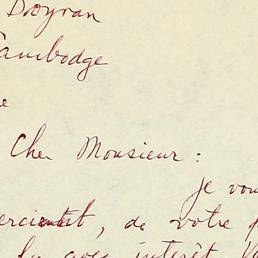 Dogran
Cambodge
e
Cher Monsieur :
Je vou
erci, de votre p
lu avec intérêt V